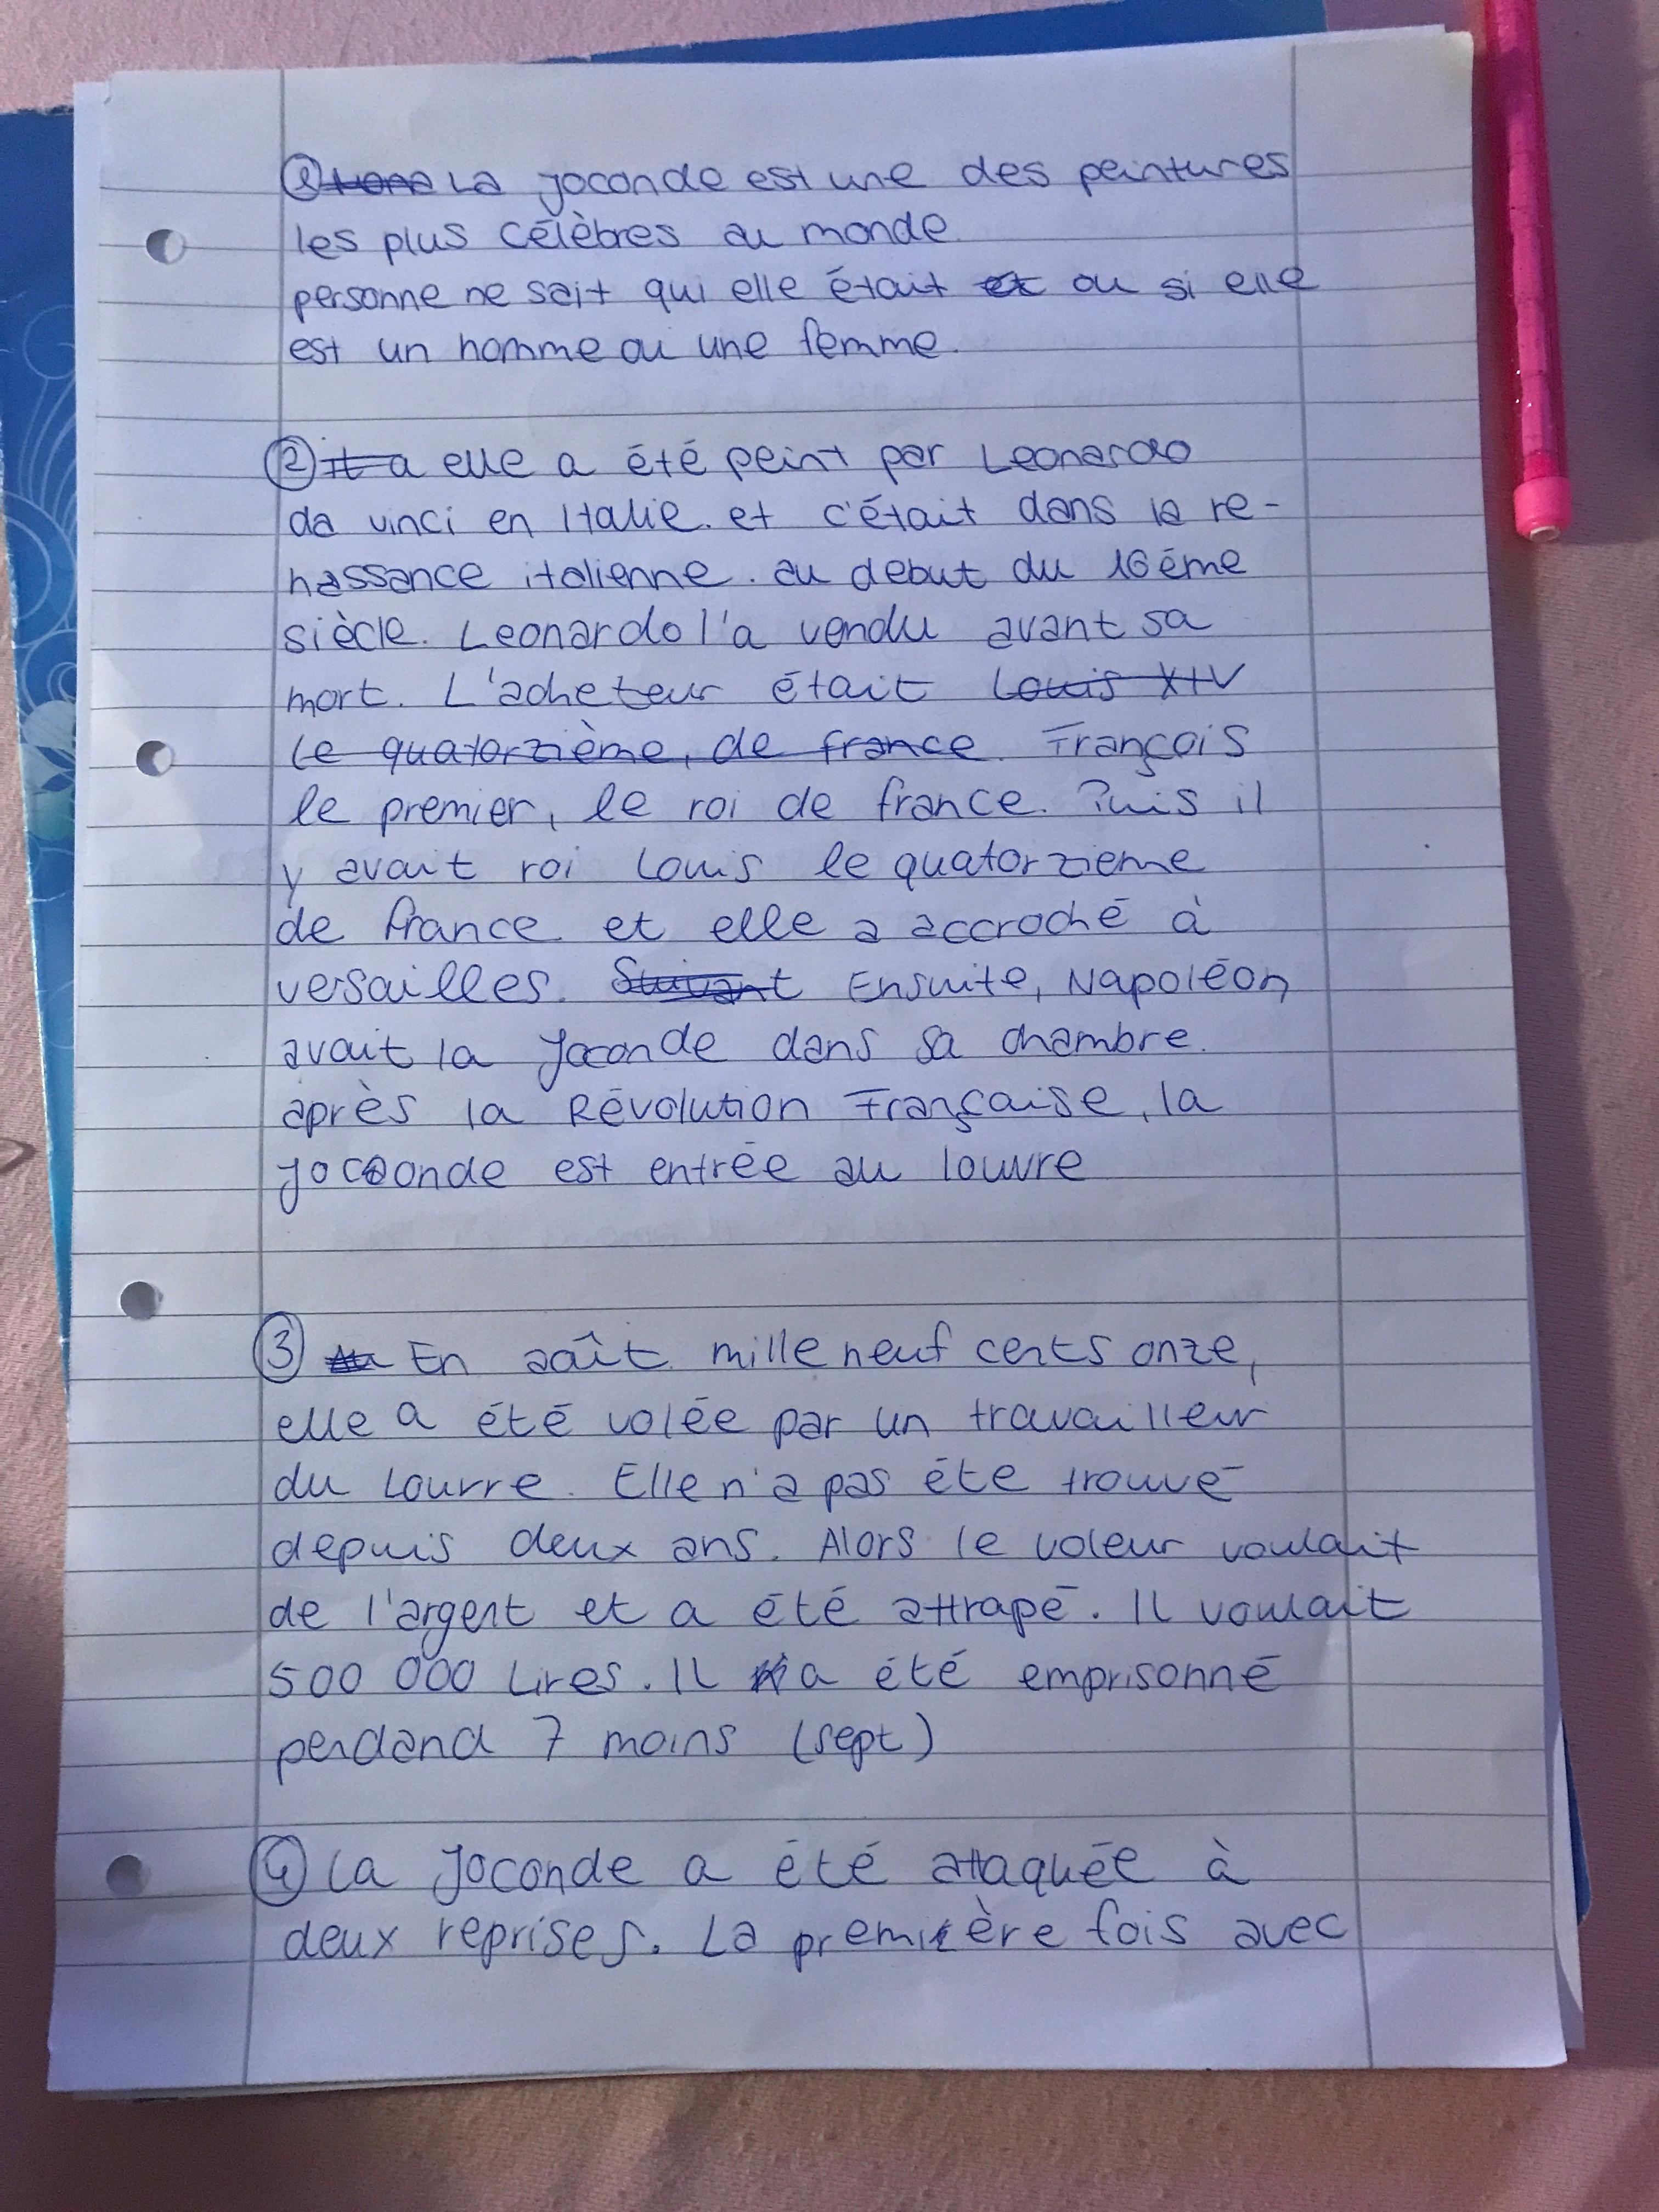 ① La Joconde est une des peintures
les plus célèbres au monde.
personne ne sait qui elle était ou si elle
est un homme ou une femme.
② elle a été peint par Leonardo
da vinci en Italie. et c'était dans la re-
nassance italienne. au debut du 16éme
siècle. Leonardo l'a vendu avant sa
mort. L'acheteur était Louis XIV
le quatorzième, de france. Français
le premier, le roi de france. Puis il
y avait roi Louis le quatorzieme
de france et elle a accroché à
versailles. Suivant Ensuite, Napoléon
avait la Joconde dans sa chambre.
après la Révolution Française, la
Joconde est entrée au louvre
③ En aôut mille neuf cents onze,
elle a été volée par un travailleur
du Lourre. Elle n'a pas éte trouvé
depuis deux ans. Alors le voleur voulait
de l'argent et a été attrapé. Il voulait
500 000 Lires. Il a été emprisonné
pendand 7 moins (sept)
④ La Joconde a été attaquée à
deux reprises. La première fois avec